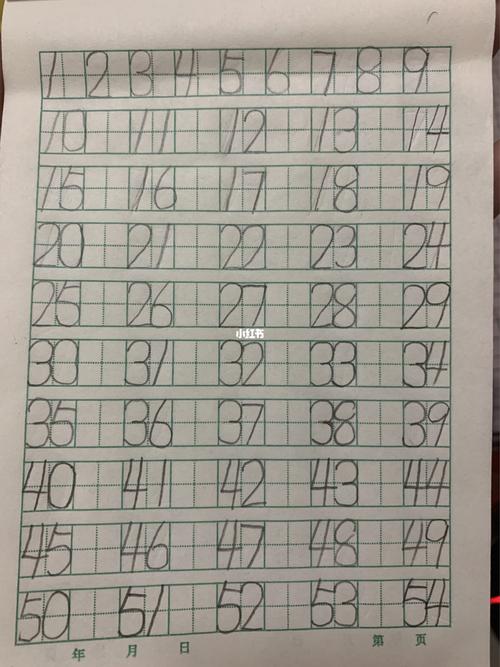 1 2 3 4 5 6 7 8 9
10 11 12 13 14
15 16 17 18 19
20 21 22 23 24
25 26 27 28 29
小红书
30 31 32 33 34
35 36 37 38 39
40 41 42 43 44
45 46 47 48 49
50 51 52 53 54
年 月 日 第 页